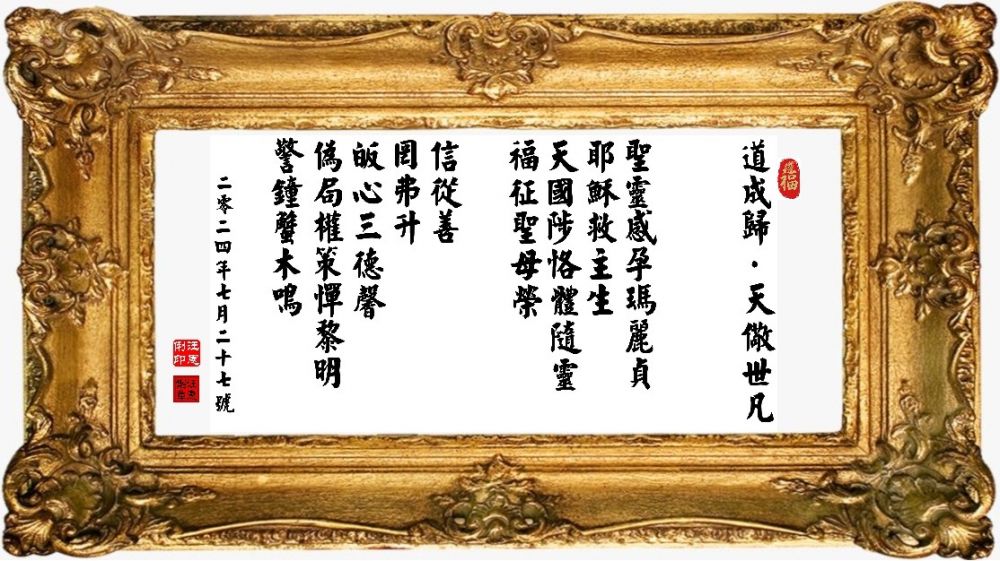 道成歸·天儆世凡
聖靈感孕瑪麗貞
耶穌救主生
天國陟恪體隨靈
福征聖母榮
信從善
罔弗升
皈心三德馨
偽局權策憚黎明
警鐘蟹木鳴
二零二四年七月二十七號